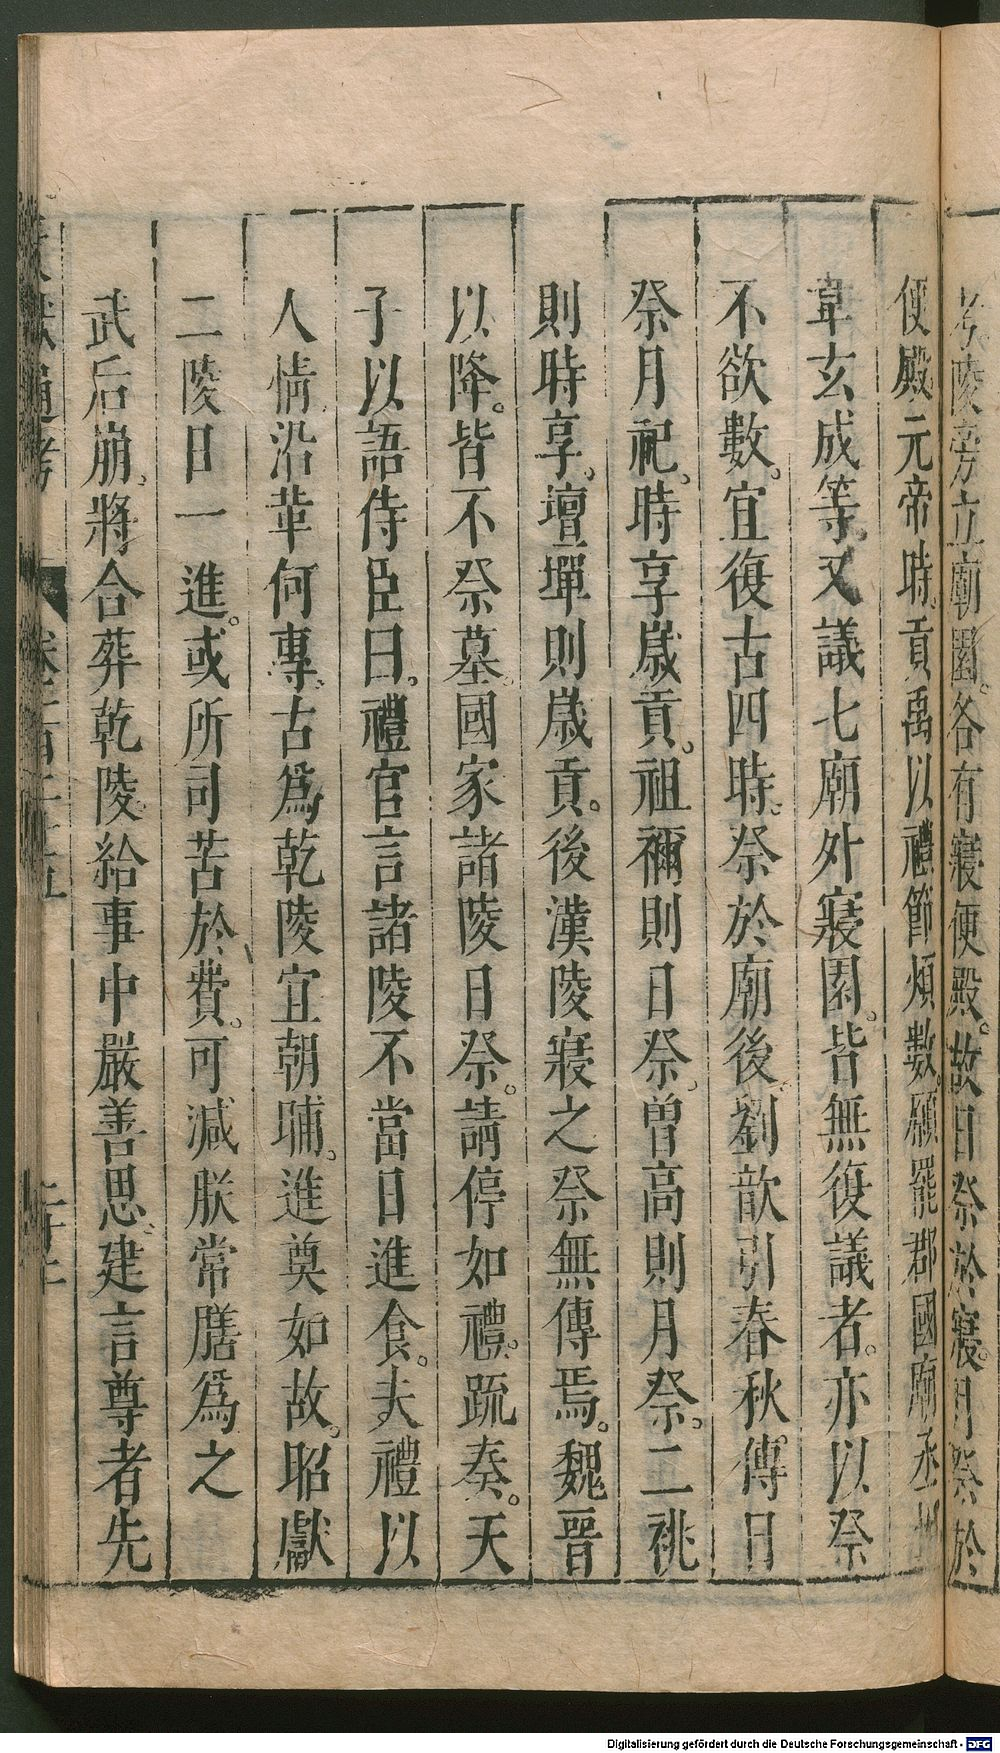 考陵旁立廟園。各有寢便殿。故日祭於寢。月祭於
便殿元帝時。貢禹以禮節煩數。願罷郡國廟丞
韋玄成等。又議七廟外寢園。皆無復議者。亦以祭
不欲數。宜復古四時。祭於廟後。劉歆引春秋傳日
祭月祀。時享歲貢。祖禰則日祭。曾高則月祭。二祧
則時享。壇墠則歲貢。後漢陵寢之祭無傳焉。魏晉
以降。皆不祭墓。國家諸陵日祭。請停如禮。疏奏。天
子以語侍臣曰。禮官言諸陵不當日進食。夫禮以
人情沿革何專。古爲乾陵宜朝晡。進奠如故。昭獻
二陵日一進。或所司苦於費。可減朕常膳爲之
武后崩。將合葬乾陵。給事中嚴善思。建言尊者先
文獻通考
卷一百二十五
二十二
Digitalisierung gefördert durch die Deutsche Forschungsgemeinschaft - DFG